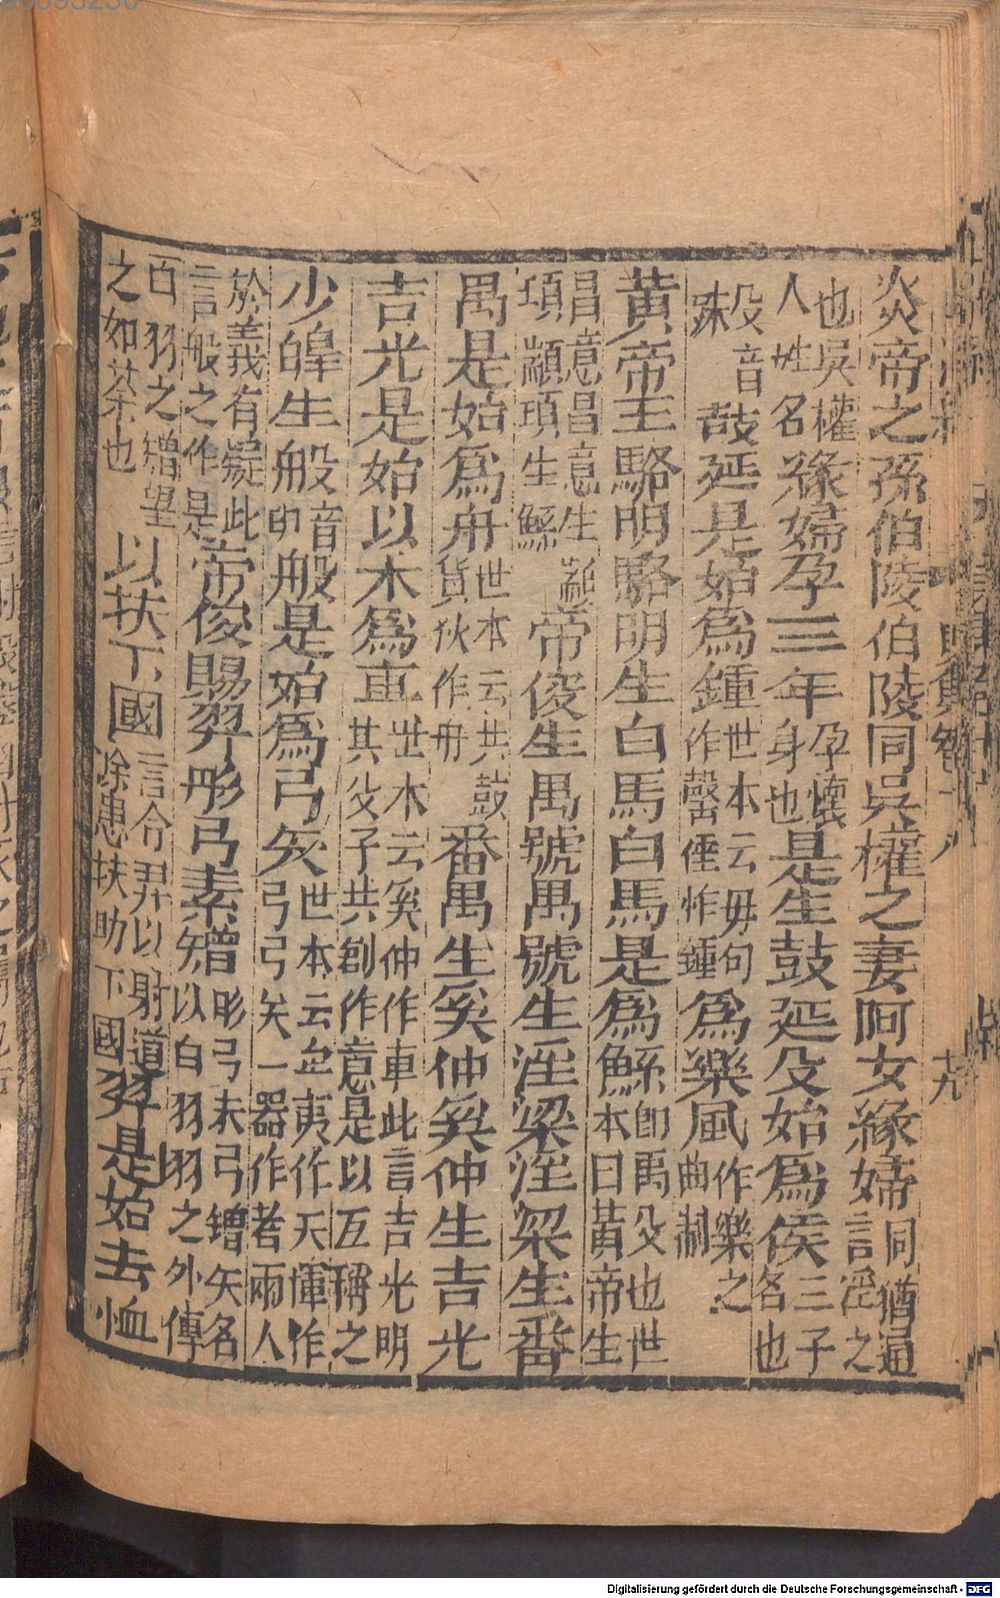 炎帝之孫伯陵伯陵同吳權之妻阿女緣婦同猶通言淫之
也吳權人姓名緣婦孕三年孕懷身也是生鼓延殳始爲侯三子名也
殳音殊鼓延是始爲鍾世本云毋句作罄倕作鍾爲樂風作樂之曲制
黃帝生駱明駱明生白馬白馬是爲鯀即禹父也世本曰黃帝生
昌意昌意生顓項顓頊生鯀帝俊生禺號禺號生淫梁淫梁生番
禺是始爲舟世本云共鼓貨狄作舟番禺生奚仲奚仲生吉光
吉光是始以木爲車世本云奚仲作車此言吉光明其父子共創作意是以互稱之
少皥生般音班般是始爲弓矢世本云牟夷作矢揮作弓弓矢一器作者兩人
於義有疑此言般之作是帝俊賜羿彤弓素矰彤弓朱弓矰矢名以白羽羽之外傳
白羽之矰望之如荼也以扶下國言令羿以射道除患扶助下國羿是始去恤
十九
Digitalisierung gefördert durch die Deutsche Forschungsgemeinschaft - DFG